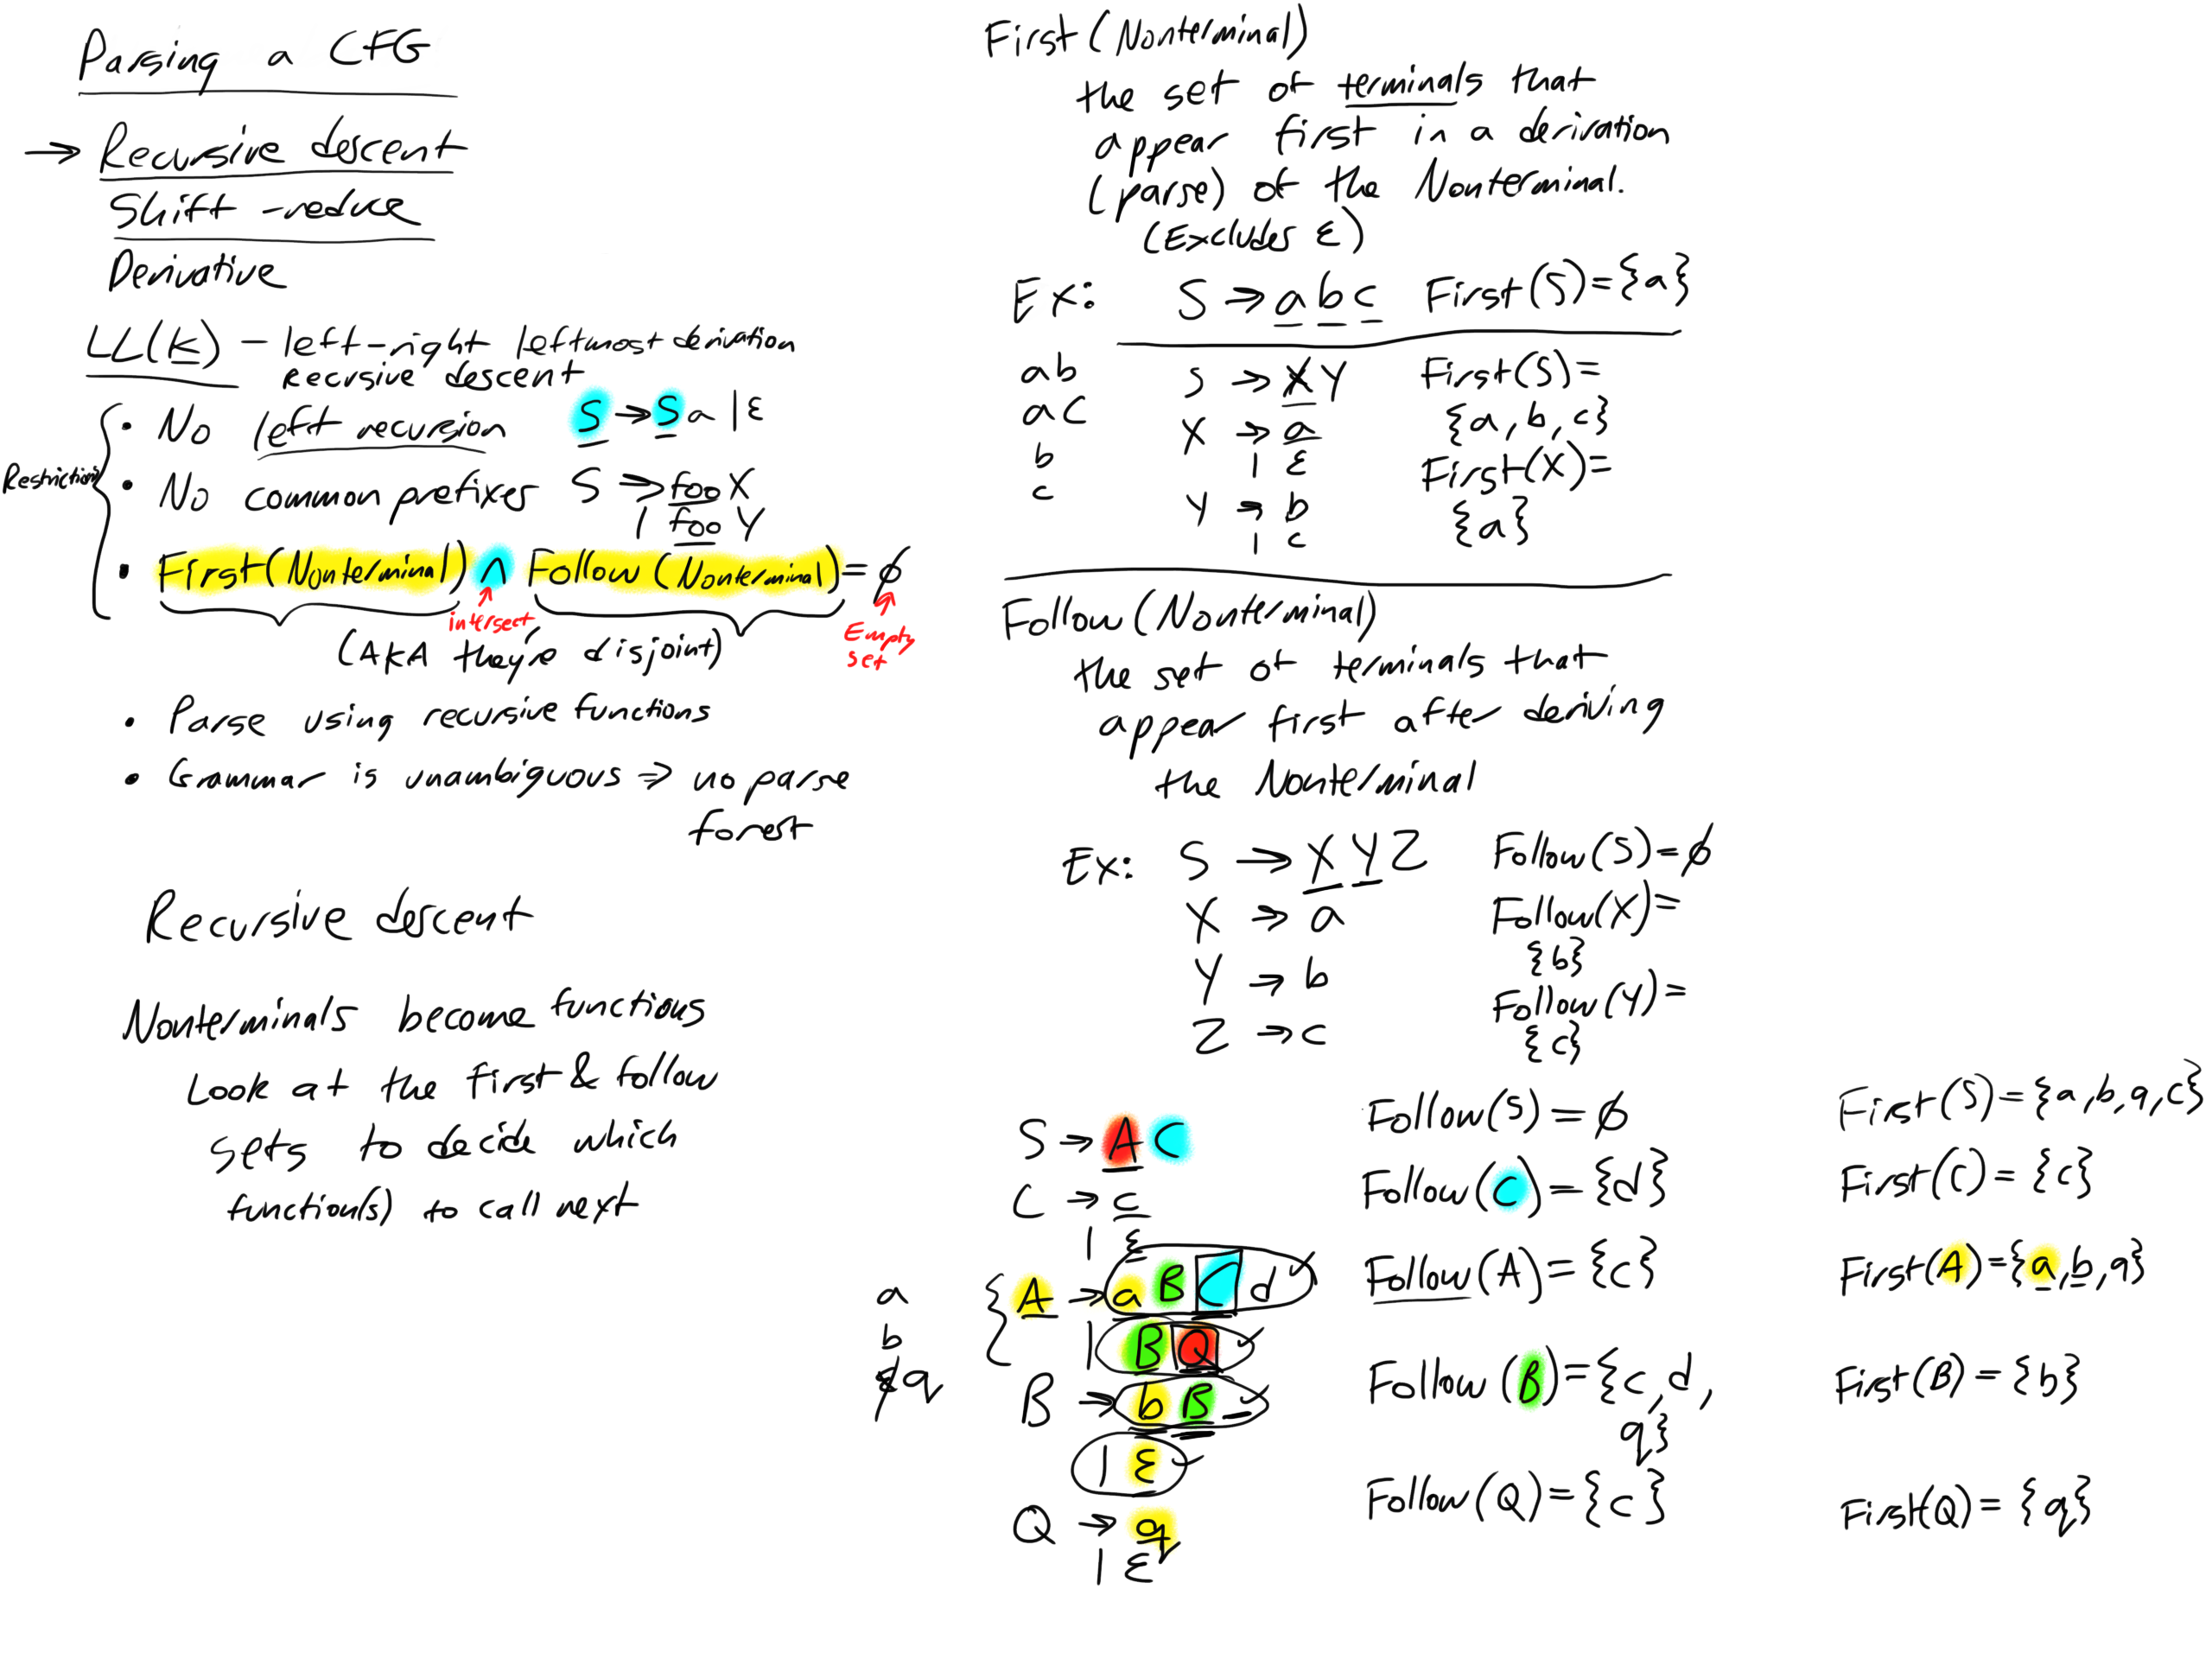 Parsing a CFG
→ Recursive descent
Shift-reduce
Derivative
LL(k) – left-right leftmost derivation
Recrsive descent
Restrictions
• No left recursion S → Sa | ε
• No common prefixes S → foo X
| foo Y
• First(Nonterminal) ∩ Follow(Nonterminal) = ∅
intersect
Empty
set
(AKA they're disjoint)
• Parse using recursive functions
• Grammar is unambiguous ⇒ no parse
forest
Recursive descent
Nonterminals become functions
Look at the first & follow
sets to decide which
function(s) to call next
First(Nonterminal)
the set of terminals that
appear first in a derivation
(parse) of the Nonterminal.
(Excludes ε)
Ex: S → a b c First(S) = {a}
ab S → XY First(S) =
ac X → a {a, b, c}
b | ε First(X) =
c Y → b {a}
| c
Follow(Nonterminal)
the set of terminals that
appear first after deriving
the Nonterminal
Ex: S → X Y Z Follow(S) = ∅
X → a Follow(X) =
{b}
Y → b Follow(Y) =
Z → c {c}
S → A C Follow(S) = ∅ First(S) = {a, b, q, c}
C → c Follow(C) = {d} First(C) = {c}
| ε
a A → a B C d Follow(A) = {c} First(A) = {a, b, q}
b | B Q
q B → b B Follow(B) = {c, d, First(B) = {b}
q}
| ε
Q → q Follow(Q) = {c} First(Q) = {q}
| ε